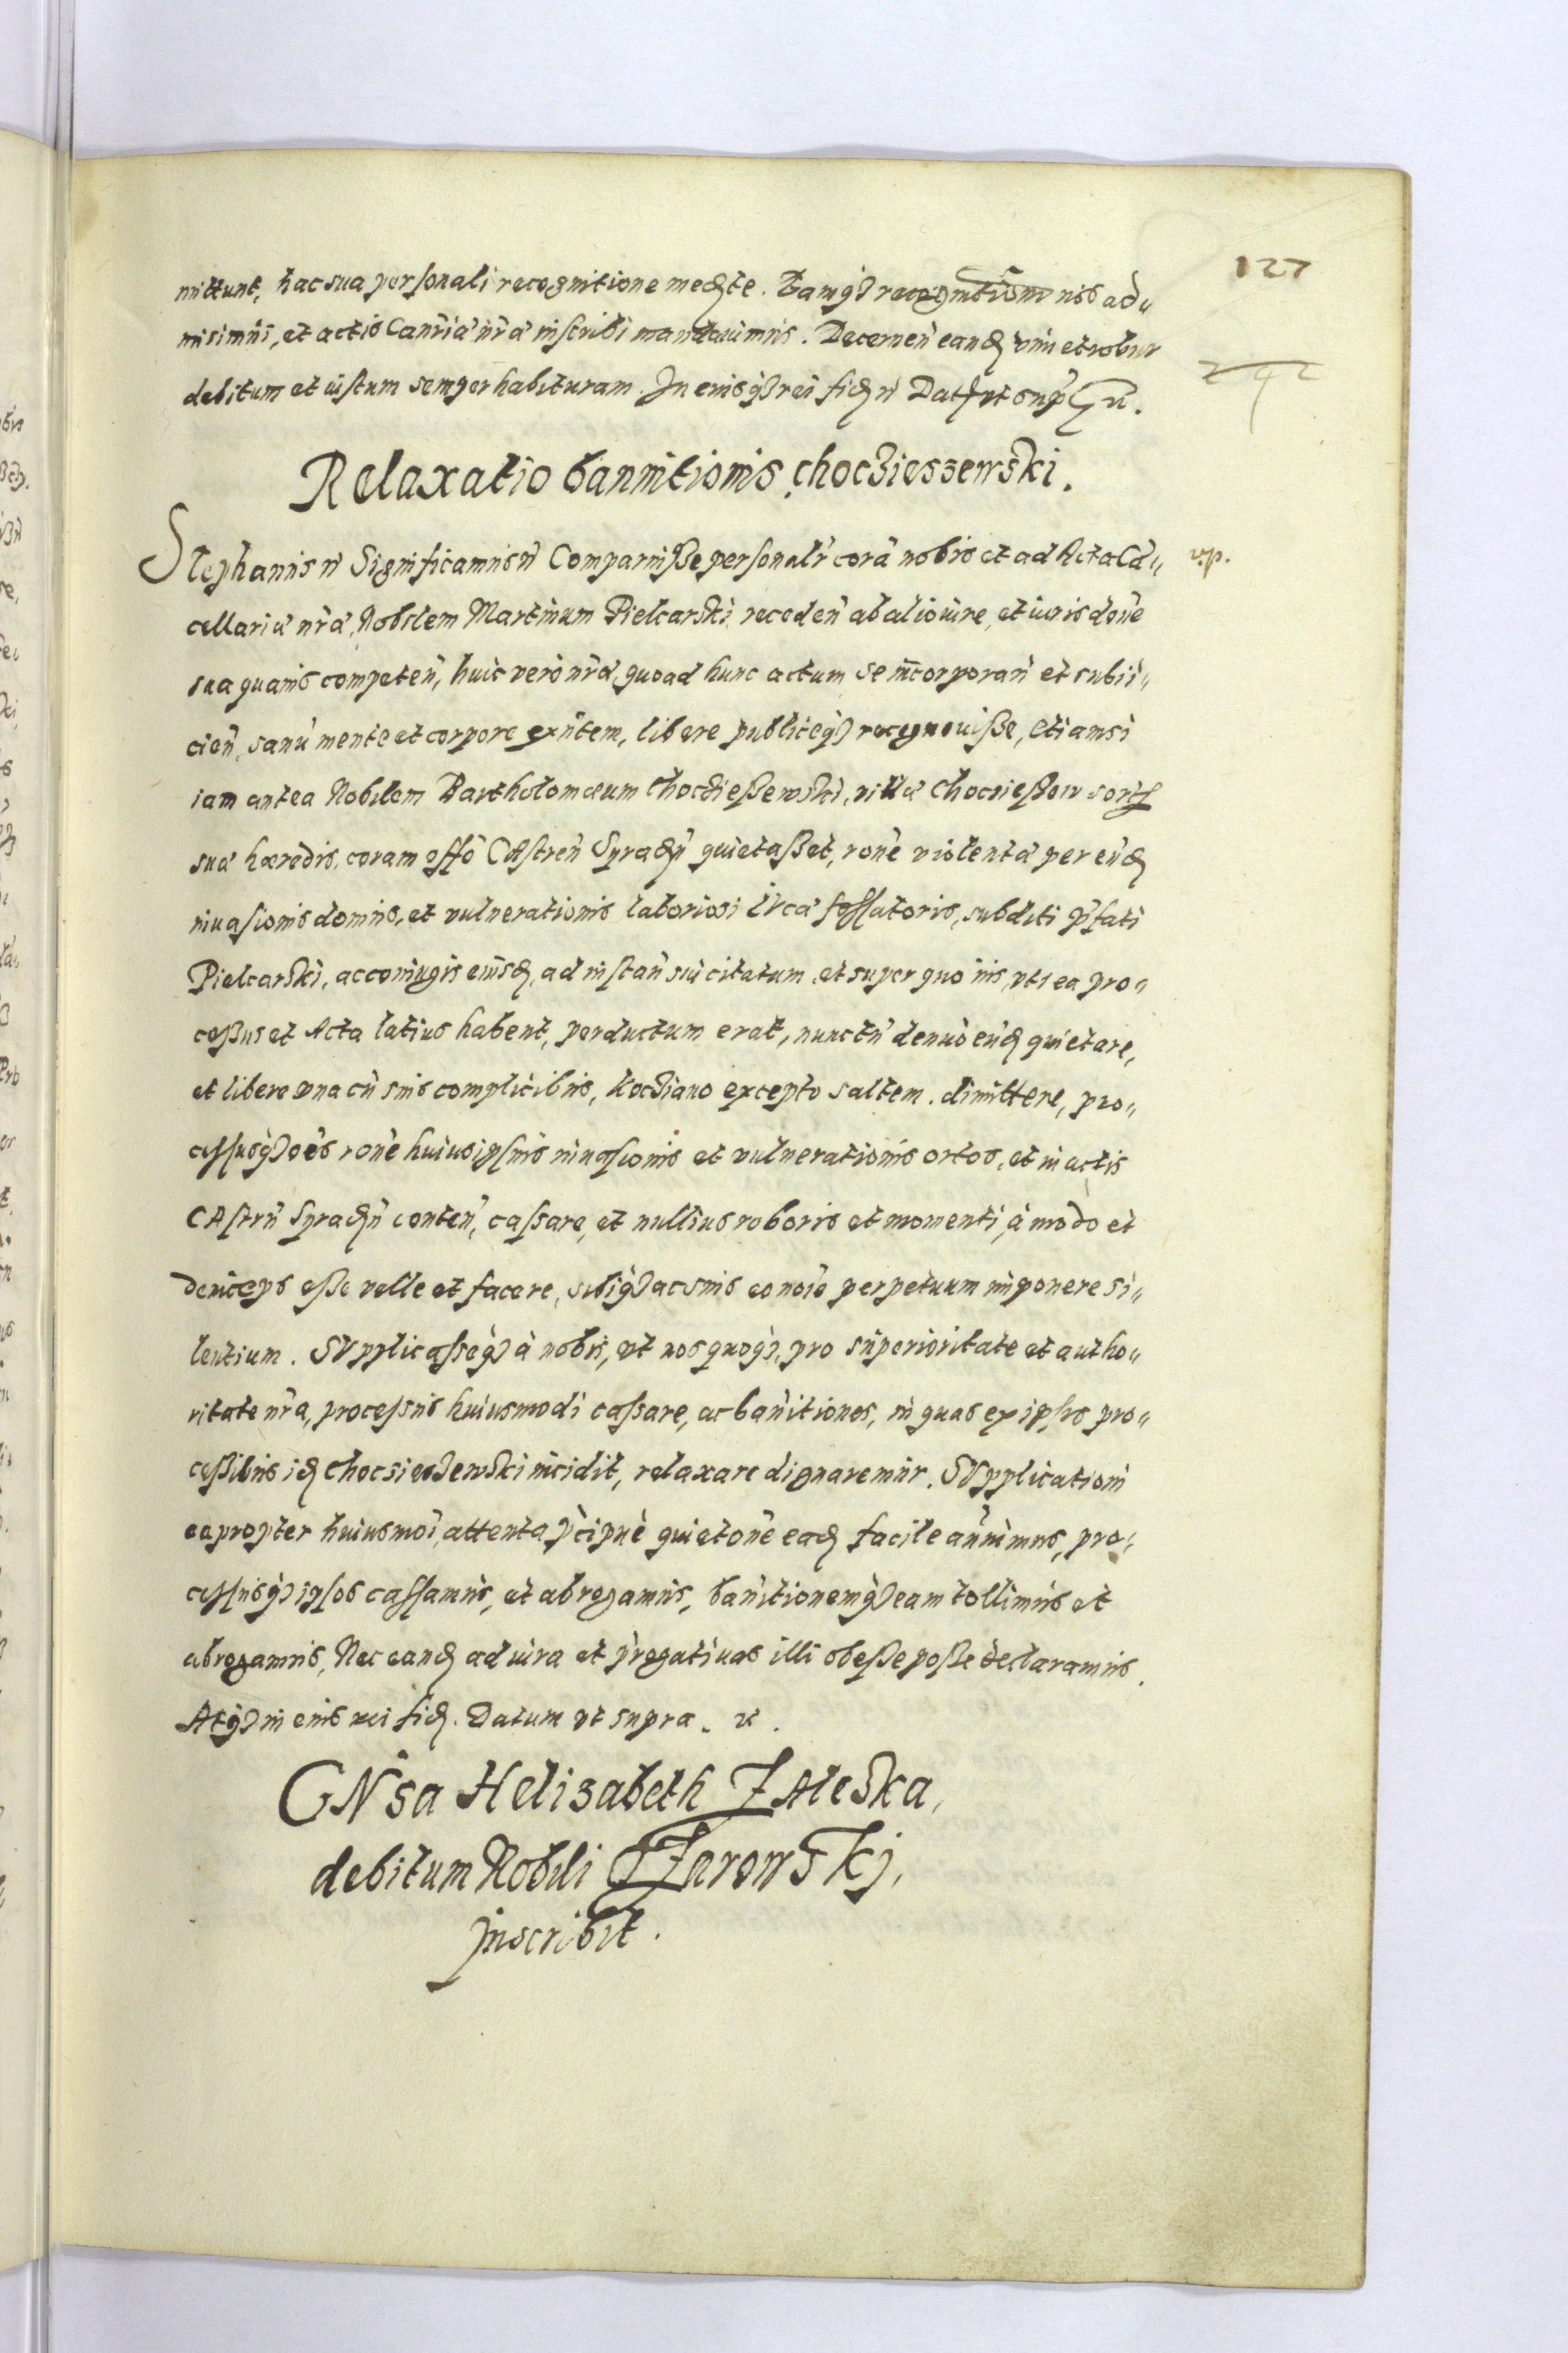 127
mittunt, hac sua personali recognitione med[ia]te. Eamq[ue] recognitionem nos ad„
misimus, et actis Canriæ nr̃æ inscribi mandauimus. Decernen̄ eand[em] vim et robur
debitum et iustum semper habituram. In cuius q[ue] rei fid[em] Dat[um] vt sup[ra]
Relaxatio bannitionis Choczieszewski.
Stephanus Significamus Comparuisse personalr̃ corā nobis et ad Acta Cā„
v.p.
cellariæ nr̃æ, Nobilem Martinum Pielcarski, receden̄ ab alio iure, et iurisdõne
sua quauis competen̄, huic vero nr̃æ, quoad hunc actum se incorporan̄ et subii„
cien̄, sanū mente et corpore exñtem, libere publiceq[ue] recognouisse, Etiamsi
iam antea Nobilem Bartholomæum Choczieszewski, villæ Choczieszow sortis
suæ hæredis, coram offõ CAstren̄ Syrad[ien]n̄ quietasset, rõne violentæ per eūd[em]
inuasionis domus, et vulnerationis laboriosi Lucæ fossatoris, subditi p̃fati
Pielcarski, ac coniugis eiusd[em], ad instan̄ sui citatum, et super quo iis, vti ea pro„
cessus et Acta latius habent, perductum erat, nunc tn̄ denuo eūd[em] quietare,
et libere vna cū suis complicibus, Kocziano excepto saltem, dimittere, pro„
cessusq[ue] oẽs rõne huius ipsius inuasionis et vulnerationis ortos, et in actis
CAstrn̄ Syrad[ien]n̄ conten̄, cassare, et nullius roboris et momenti, à modo et
deinceps esse velle et facere, sibiq[ue] ac suis eo noĩe perpetuum imponere si„
lentium. SVpplicasseq[ue] à nobis, vt nos quoq[ue], pro superioritate et autho„
ritate nr̃a, processus huiusmodi cassare, ac banitiones, in quas ex ipsis pro„
cessibus id[em] Chocsieszewski incidit, relaxare dignaremur. SVpplicationi
eapropter huiusmoi, attenta p̃cipue quietõne ead[em] facile añuimus, pro„
cessusq[ue] ipsos cassamus, et abrogamus, banitionemq[ue] eam tollimus et
abrogamus, Nec eand[em] ad iura et p̃rogatiuas illi obesse posse declaramus.
Atq[ue] in eius rei fid[em]. Datum vt supra.
GNsa Helizabeth ZAleska,
debitum Nobili Ozarowskj,
Inscribit.